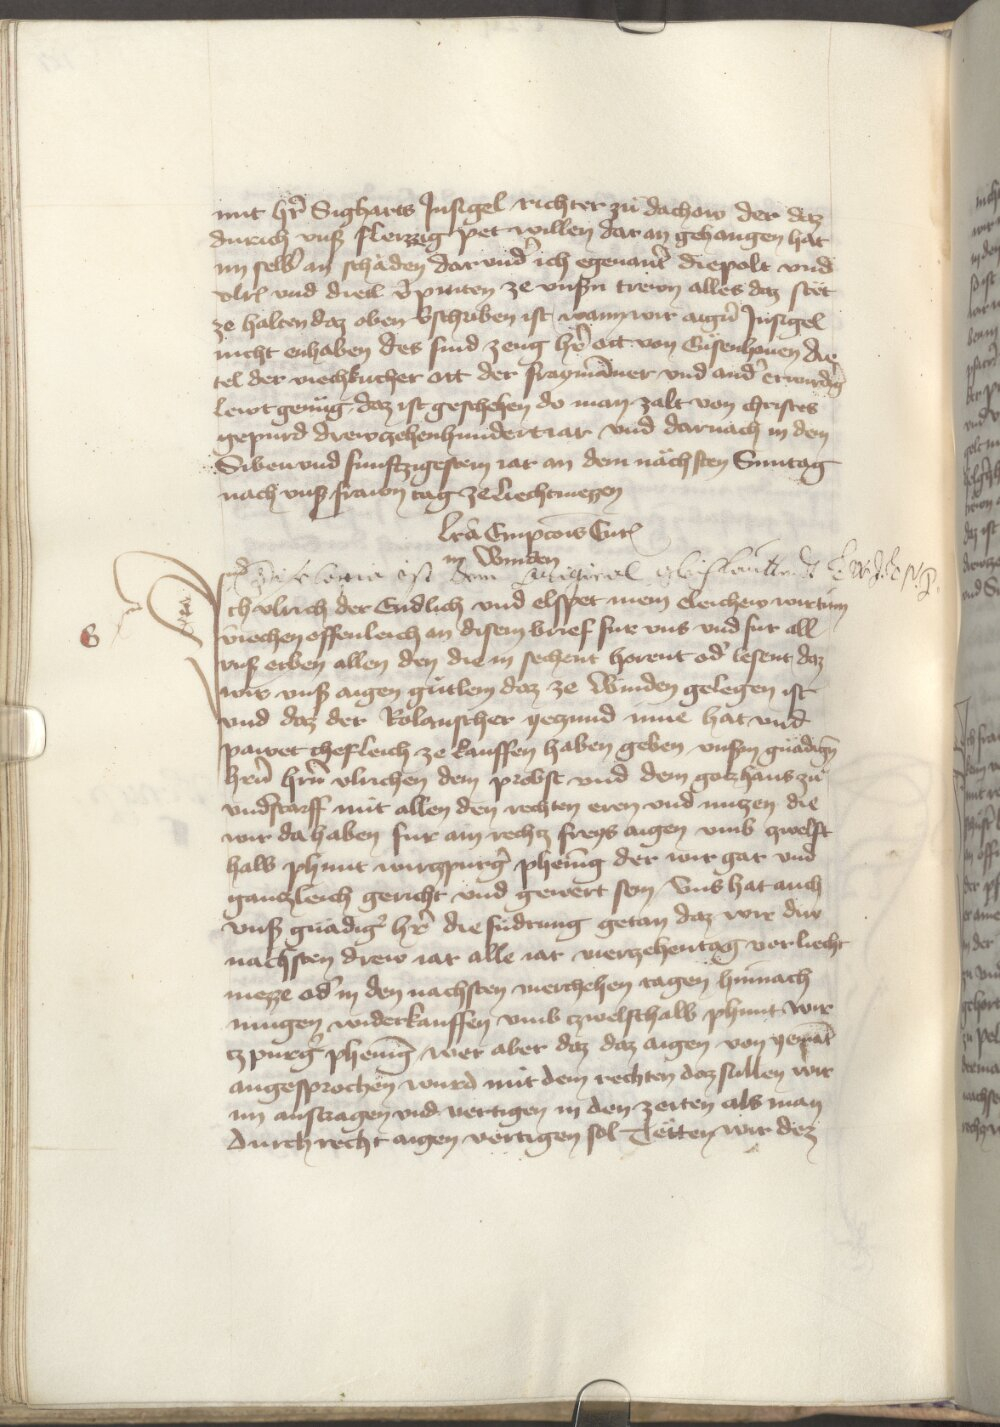 mit hr̄ Sigharts Jnsigel richter zu dachaw der daz
durich vnsß fleizzig pet willen dar an gehangen hat
im selb' an schaden dar vnd' ich egenant' diepolt vnd
vlr̄ vnd die v'pinten ze vnsßn trewn alles daz stet
ze halten daz oben v'schriben ist wann wir aigen Jnsigel
nicht enhaben des sind zeug hr̄ ott von Eisenhouen die
tel der viechkircher ott der and' erwirdig
lewt genug daz ist geschehen do man zalt von christes
gepurd drewzehenhundert iar vnd darnach in dem
Siben vnd funftzigestem iar an dem nächsten Suntag
nach vnsß frawn tag ze liechtmezzen
lr̄a Empcōis Cur̄
in Winden
ist
ch vlrich der Endlich vnd elspet mein eleichew wirtinn
viechen offenleich an disem brief fur vns vnd fur all
vnsß erben allen den die in sechent horent od' lesent daz
wir vnsß aigen gütlein daz ze Winden gelegen ist
vnd daz der yezund inne hat vnd
pawet chefleich ze kauffen haben geben vnsßm gnädign̄
hrn̄ hrn̄ vlrichen dem probst vnd dem gotzhaus zu
vnd'storff mit allen den rechten eren vnd nutzen die
wir da haben fur ain rechtz freys aigen vmb zwelft
halb phunt wirtzpurg' phenīg der wir gar vnd
gantzleich gericht vnd gewert sein Vns hat auch
vnsß gnädig' hr̄ die fudrung getan daz wir diw
nachsten drew iar alle iar vierzehen tag vor liecht
mezze od' in den nachsten vierzehen tagen hinnach
mugen widerkauffen vmb zwelfthalb phunt wir
tzpurg' phenīg wer aber daz daz aigen von yemāt
angesprochen wurd mit dem rechten daz sullen wir
im austragen vnd vertigen in den zeiten als man
durch recht aigen vertigen sol Tëtten wir dez